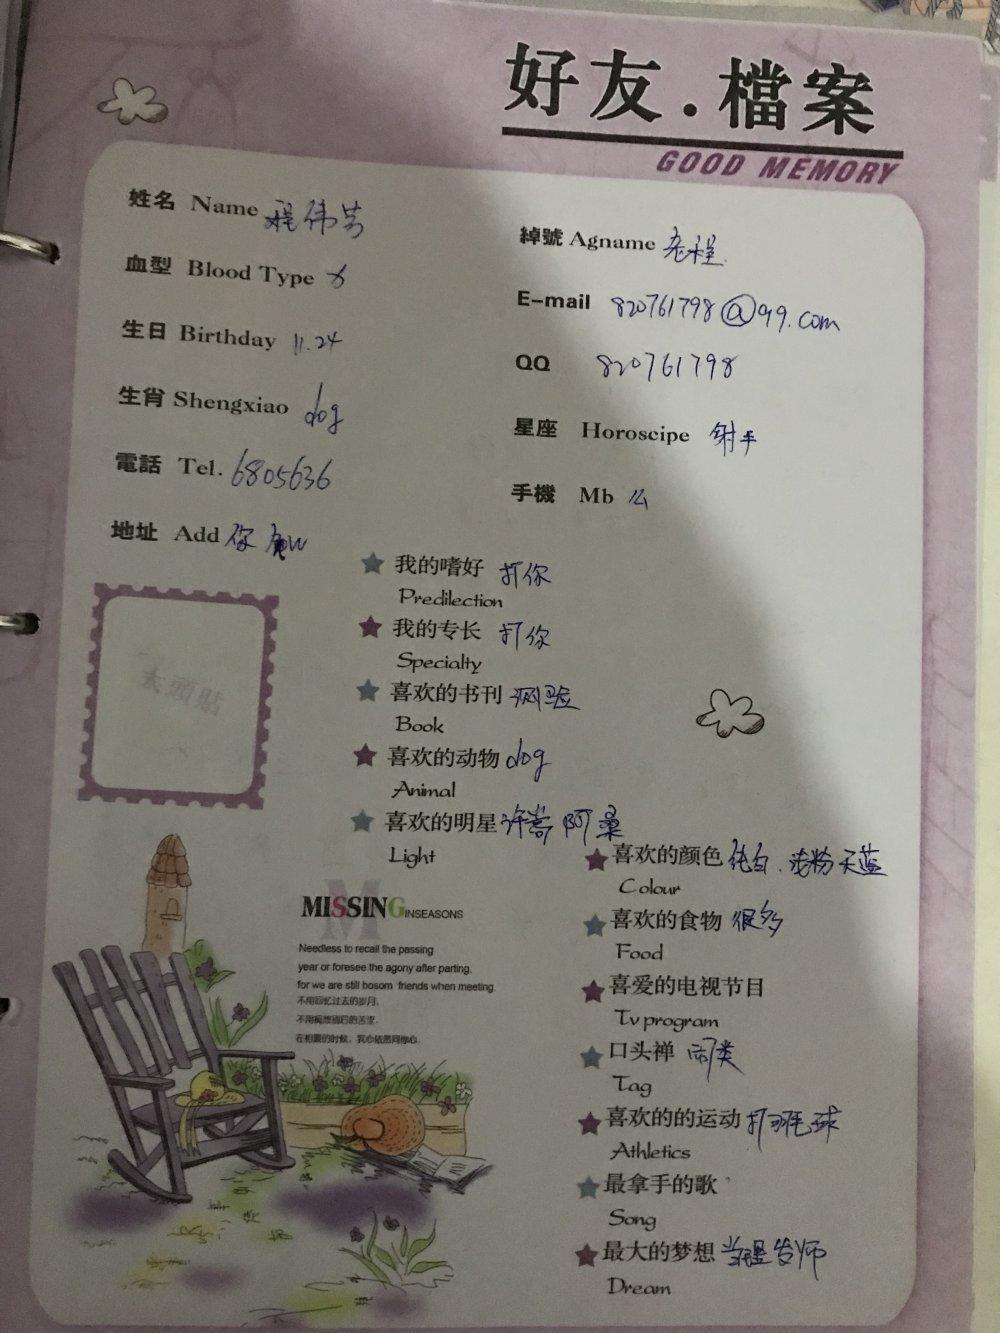 好友.檔案
GOOD MEMORY
姓名 Name 程伟芳
綽號 Agname 老程
血型 Blood Type
E-mail 820761798@qq.com
生日 Birthday 11.24
QQ 820761798
生肖 Shengxiao dog
星座 Horoscipe 射手
電話 Tel. 6805636
手機 Mb
地址 Add 你
我的嗜好 打你
Predilection
我的专长 打你
Specialty
喜欢的书刊
Book
喜欢的动物 dog
Animal
喜欢的明星 许嵩 阿桑
Light
大頭貼
喜欢的颜色 纯白.浅粉 天蓝
Colour
喜欢的食物 很多
Food
喜爱的电视节目
Tv program
口头禅
Tag
喜欢的的运动 打羽毛球
Athletics
最拿手的歌
Song
最大的梦想 当理发师
Dream
MISSING INSEASONS
Needless to recall the passing
year or foresee the agony after parting.
for we are still bosom friends when meeting.
不用回忆过去的岁月,
在相圆的时候，我心依然同你心.